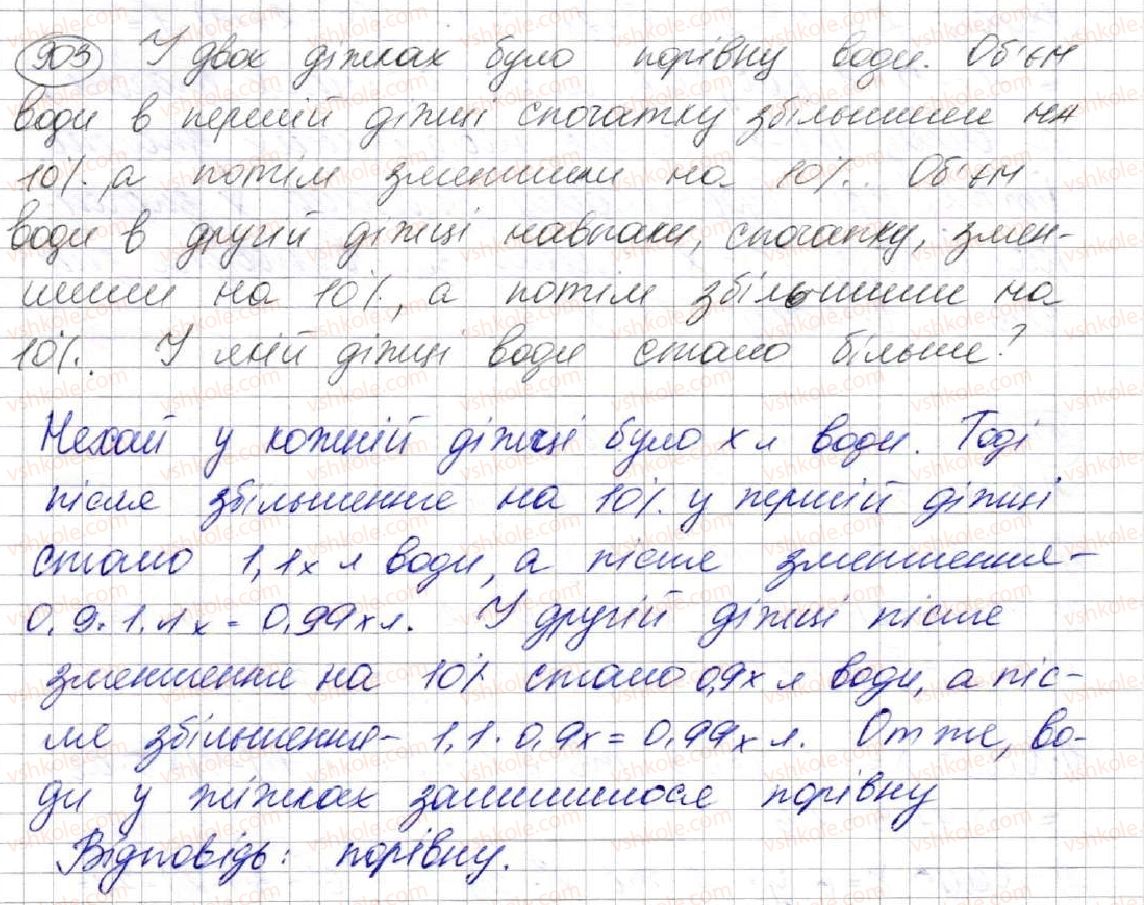 903 У двох діжках було порівну води. Об'єм
води в першій діжці спочатку збільшили на
10%, а потім зменшили на 10%. Об'єм
води в другій діжці навпаки, спочатку, змен-
шили на 10%, а потім збільшили на
10%. У якій діжці води стало більше?
Нехай у кожній діжці було x л води. Тоді
після збільшення на 10% у першій діжці
стало 1,1x л води, а після зменшення-
0,9·1,1x=0,99x л. У другій діжці після
зменшення на 10% стало 0,9x л води, а піс-
ля збільшення- 1,1·0,9x=0,99x л. Отже, во-
ди у жіжках залишилося порівну
Відповідь: порівну.